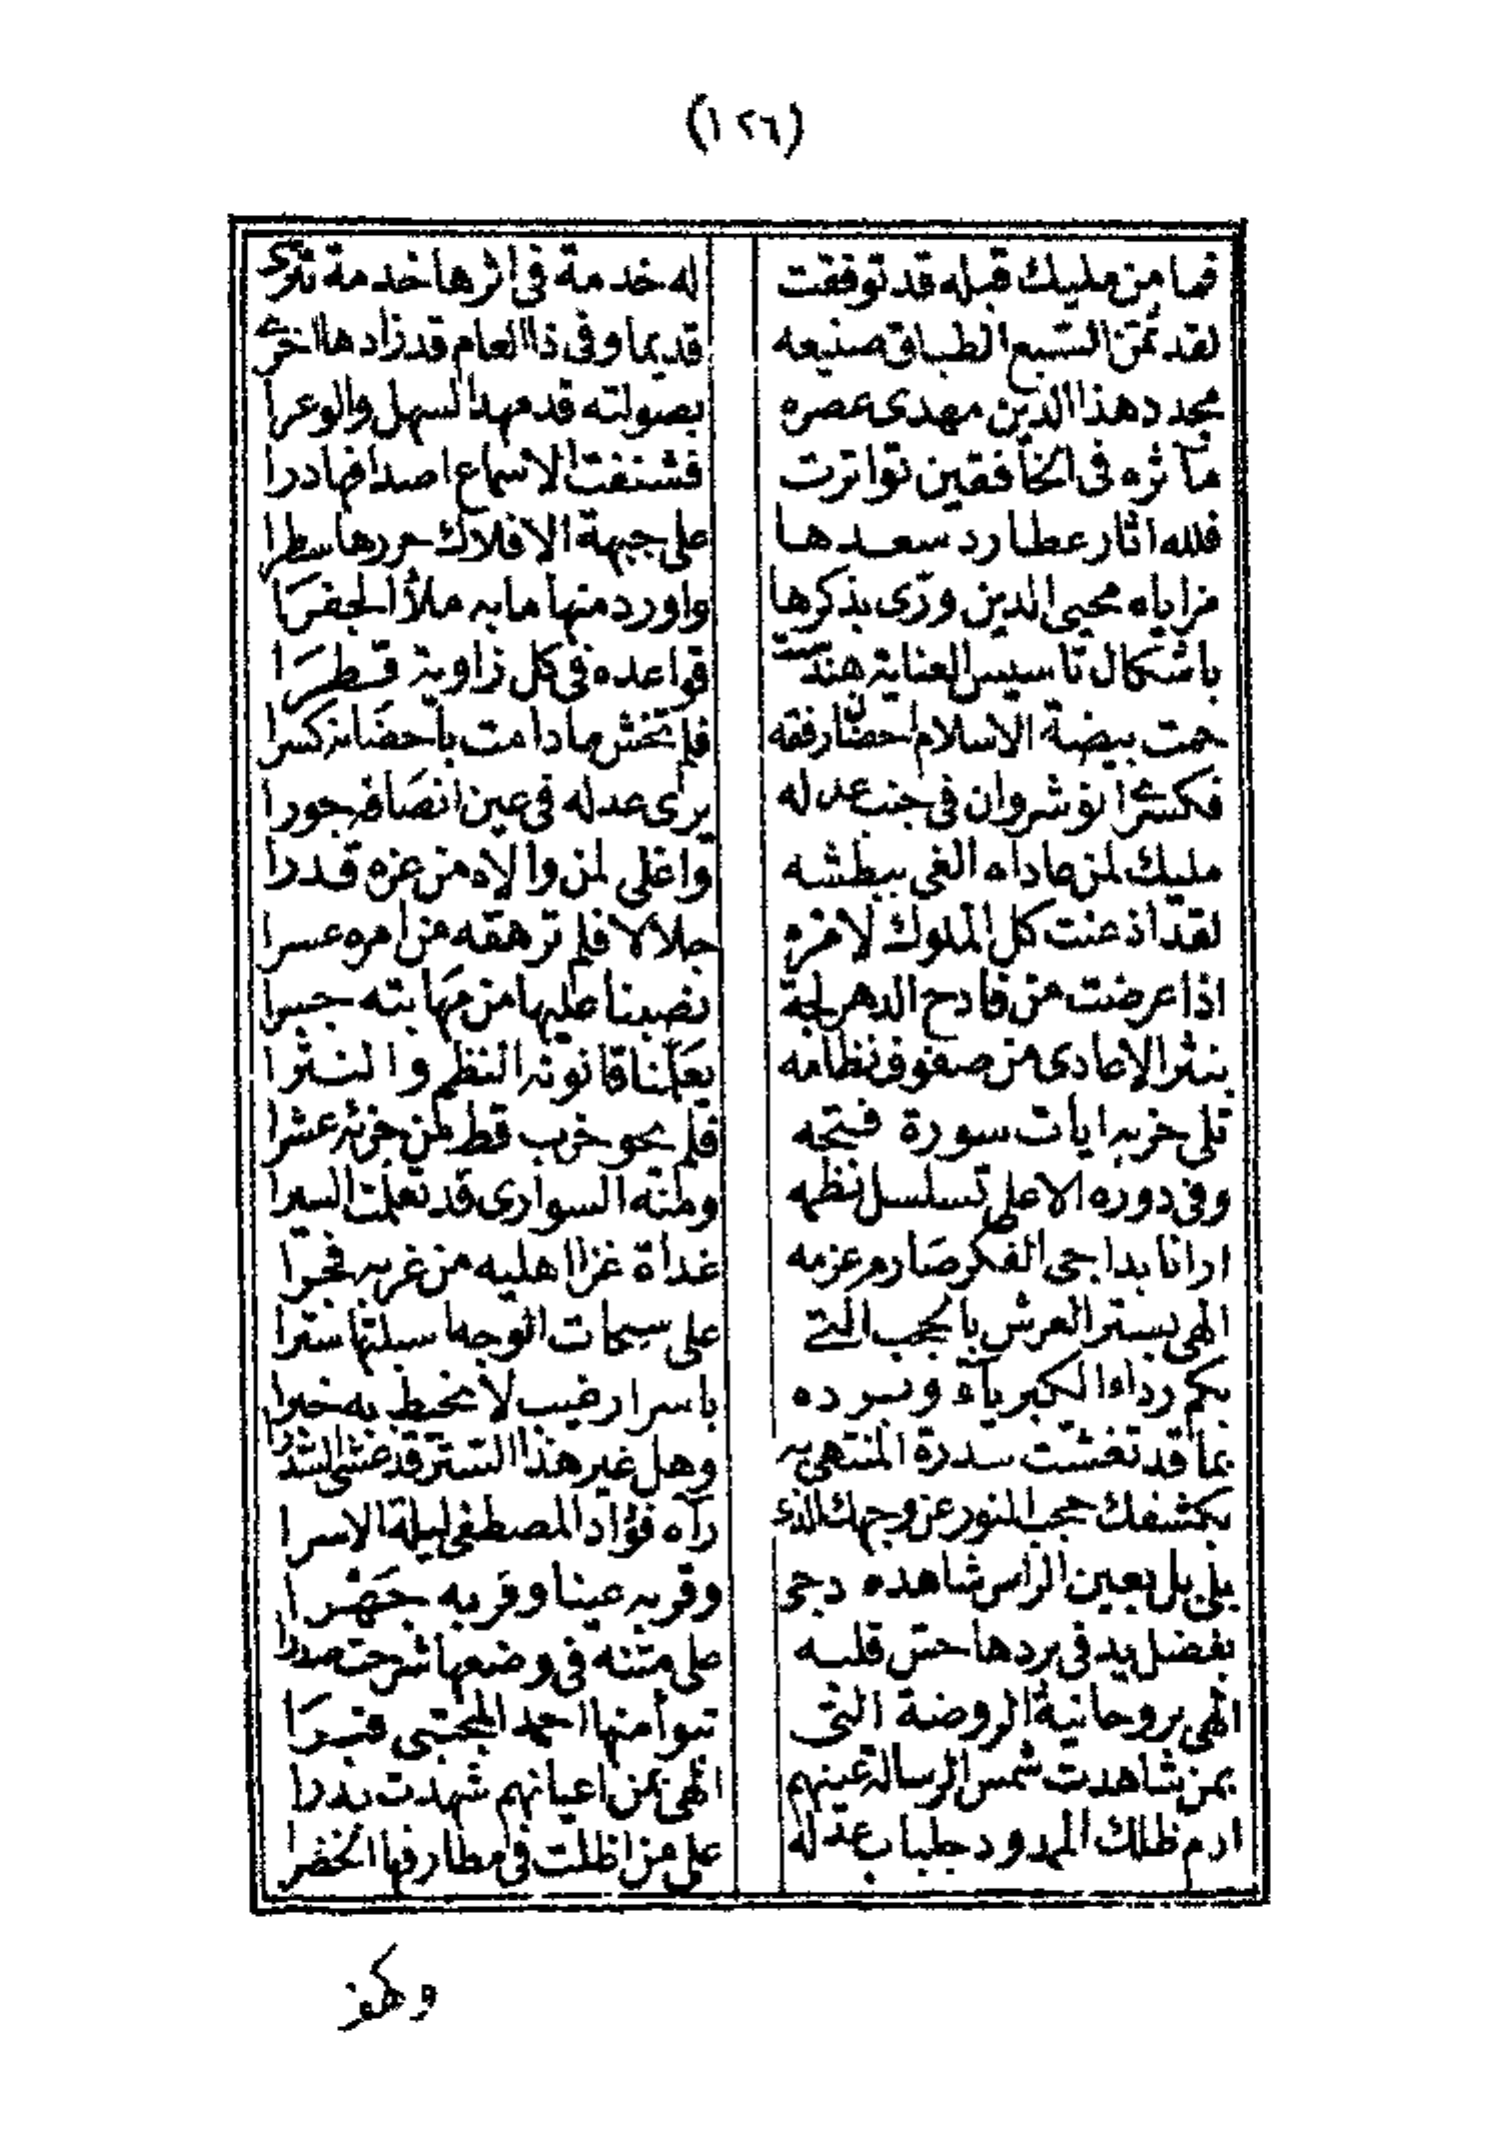 (١٢٦)
فما من مليك قبله قد توفقت له خدمة في اثرها خدمة تترى
لقد ثمن السبع الطباق صنيعه قديما وفي ذا العام قد زادها اخرى
مجدد هذا الدين مهدى عصره بصولته قد مهد السهل والوعرا
مآثره في الخافقين تواترت فشنفت الاسماع اصدافها درا
فلله اثار عطارد سعدها على جبهة الافلاك حررها سطرا
مزاياه محيى الدين ورّى بذكرها واورد منها ما به ملأ الجفرا
باشكال تاسيس العناية هندست قواعده في كل زاوية قطرا
حمت بيضة الاسلام احضان رفقه فلم تخش ما دامت باحضانه كسرا
فكسرى انوشروان في جنب عدله يرى عدله في عين انصافه جورا
مليك لمن عاداه الغى ببطشه واغلى لمن والاه من عزه قدرا
لقد اذعنت كل الملوك لامره جلالا فلم ترهقه من امره عسرا
اذا عرضت من فادح الدهر لجة نصبنا عليها من مهابته جسرا
بنثر الاعادى من صفوف نظامه يعلمنا قانونه النظم والنثرا
تلى حزبه ايات سورة فتحه فلم يحو حزب قط من حزبه عشرا
وفى دوره الاعلى تسلسل نظمه ومنه السوارى قد تعلمت السيرا
ارانا بداجى الفكر صارم عزمه غداة غزا اهليه من غربه فجرا
الهى بستر العرش بالحجب التى على سبحات الوجه اسبلتها سترا
بكم رداء الكبرياء وبرده باسرار غيب لا نحيط به خبرا
بما قد تغشت سدرة المنتهى به وهل غير هذا الستر قد غشى السدرا
بكشفك حجب النور عن وجهك الذى رآه فؤاد المصطفى ليلة الاسرا
بلى بل بعين الراس شاهده دجى وقربه عينا وقر به جهرا
بفضل يد في بردها حس قلبه على متنه في وضعها شرحت صدرا
الهى بروحانية الروضة التى تبوأ منها احمد المجتبى قبرا
بمن شاهدت شمس الرسالة عينهم الهى بمن اعيانهم شهدت بدرا
ادم ظلك الممدود جلباب عدله على من اظلت في مطارفها الخضرا
وكهفـ